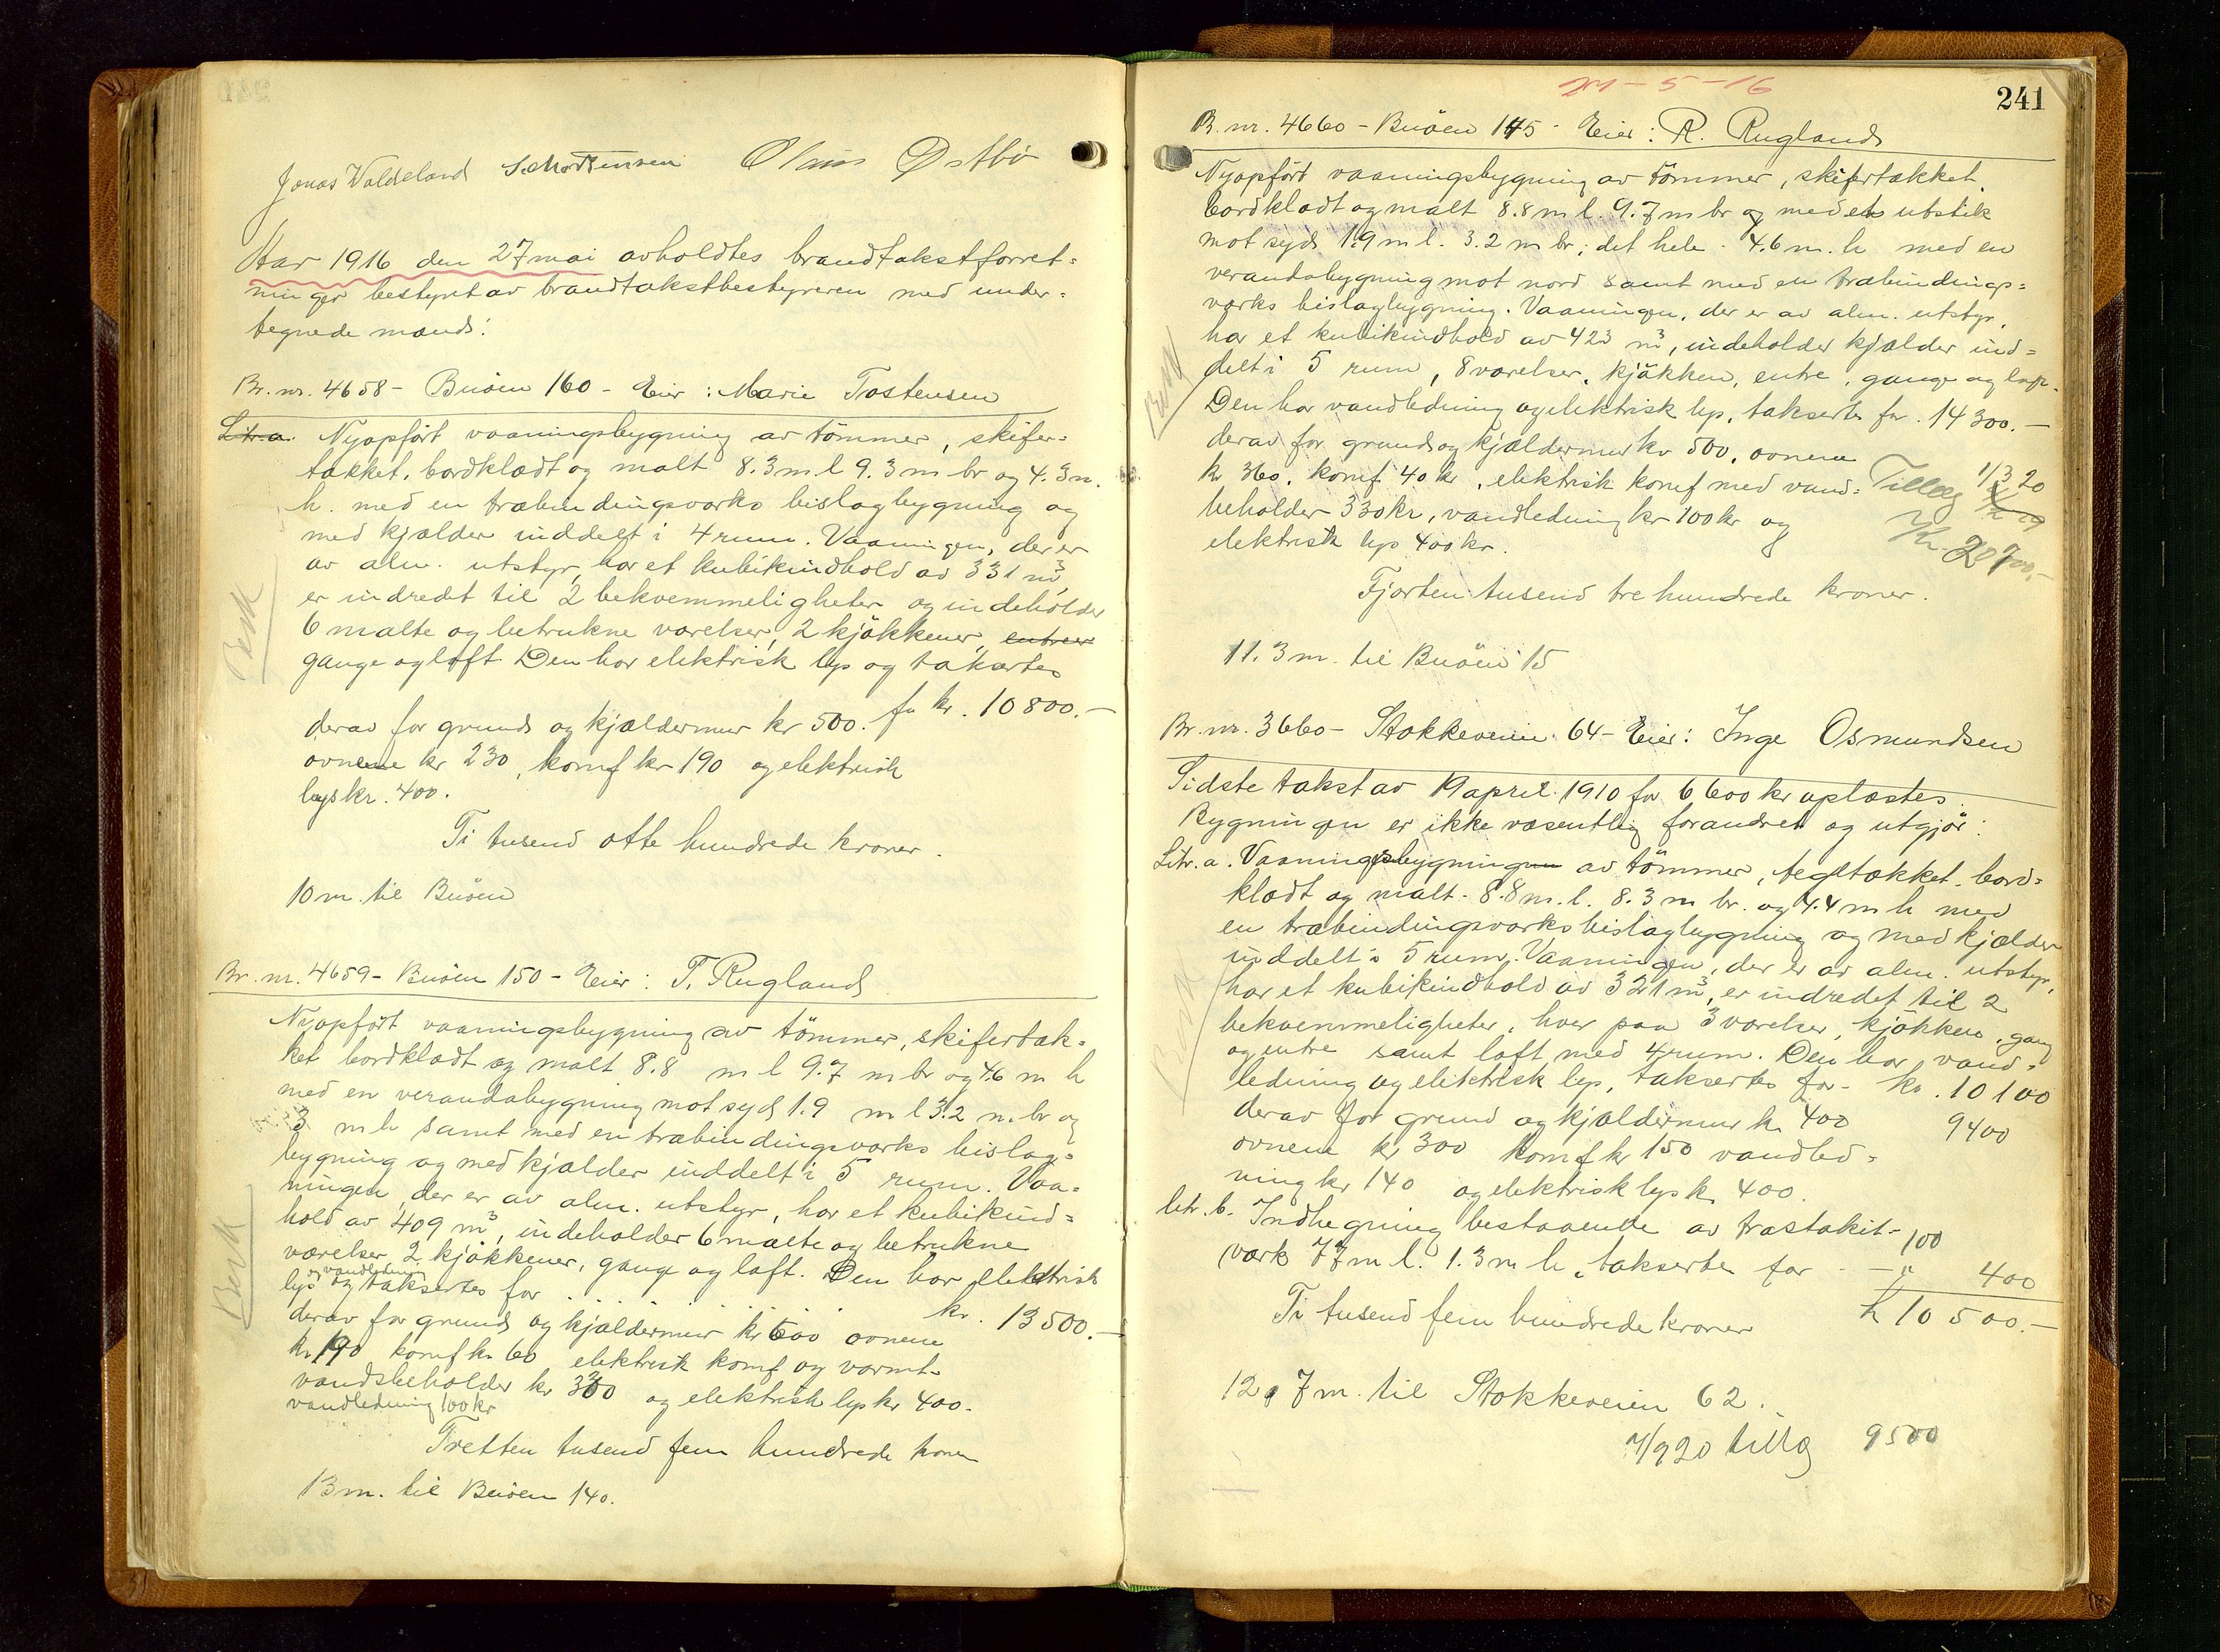 Jonas Waldeland S. Mortensen Olaus Østbø
Aar 1916 den 27 mai avholdtes brandtakstforret=
ninger bestyret av brandtakstbestyreren med under=
tegnede mænd:
Br. nr. 4658 - Buöen 160 - Eier: Marie Tostensen
Litr. a. Nyopfört vaaningsbygning av tömmer, skifer=
tækket, bordklædt og malt 8.3 m l 9.3 m br og 4.3 m.
h. med en træbindingsværks bislagbygning og
med kjælder inddelt i 4 rum. Vaaningen, der er
av alm. utstyr, har et kubikindhold av 331 m³,
er indredet til 2 bekvemmeligheter og indeholder
6 malte og betrukne værelser, 2 kjökkener, entreer
gange og loft. Den har elektrisk lys og taksertes
for kr. 10800.-
derav for grund og kjældermur kr 500.
ovnene kr 230, komf kr 190 og elektrisk
lys kr. 400.
Ti tusend otte hundrede kroner.
10 m. til Buöen
Br. nr. 4659 - Buöen 150 - Eier: T. Rugland
Nyopfört vaaningsbygning av tömmer, skifertæk=
ket bordklædt og malt 8.8 m l 9.7 m br og 4.6 m h
med en verandabygning mot syd 1.9 m l 3.2 m. br og
3 m h samt med en træbindingsværks bislag=
bygning og med kjælder inddelt i 5 rum. Vaa=
ningen, der er av alm. utstyr, har et kubikind=
hold av 409 m³, indeholder 6 malte og betrukne
værelser 2 kjökkener, gange og loft. Den har elektrisk
og vandledning
lys og taksertes for . . . . . . . kr. 13500.-
derav for grund og kjældermur kr 600 ovnene
kr 190 komf kr 60 elektrisk komf og varmt-
vandsbeholder kr 330 og elektrisk lys kr 400.
vandledning 100 kr
Tretten tusend fem hundrede kroner
13 m. til Buöen 140.
Besk
Besk
241
27-5-16
B. nr. 4660 - Buöen 145 - Eier: R. Rugland
Nyopfört vaaningsbygning av tömmer, skifertækket,
bordklædt og malt 8.8 m l. 9.7 m br og med et utstik
mot syd 1.9 m l. 3.2 m br; det hele 4.6 m. h med en
verandabygning mot nord samt med en træbindings=
værks bislagbygning. Vaaningen, der er av alm. utstyr,
har et kubikindhold av 423 m³, indeholder kjælder ind=
delt i 5 rum, 8 værelser, kjökken, entre, gange og loft.
Den har vandledning og elektrisk lys, takserte for 14300.-
derav for grund og kjældermur kr 500, ovnene
kr 360, komf 40 kr, elektrisk komf med vand=
beholder 330 kr, vandledning kr 100 kr og
elektrisk lys 400 kr.
Tillæg 1/3 20
Kr. 20700.-
Fjorten tusend tre hundrede kroner.
11.3 m. til Buöen 15
Br. nr. 3660 - Stokkeveien 64 - Eier: Inge Osmundsen
Sidste takst av 19 april 1910 for 6600 kr oplæstes.
Bygningen er ikke væsentlig forandret og utgjör:
Litr. a. Vaaningsbygningen av tömmer, tegltækket, bord=
klædt og malt 8.8 m. l. 8.3 m br. og 4.4 m h med
en træbindingsværks bislagbygning og med kjælder
inddelt i 5 rum. Vaaningen, der er av alm. utstyr,
har et kubikindhold av 321 m³, er indredet til 2
bekvemmeligheter, hver paa 3 værelser, kjökken, gang
og entre samt loft med 4 rum. Den har vand=
ledning og elektrisk lys, taksertes for - kr. 10100
derav for grund og kjældermur kr 400 9400
ovnene kr 300 komf kr 150 vandled=
ning kr 140 og elektrisk lys kr 400.
litr. b. Indhegning bestaaende av træstakit-
værk 77 m l. 1.3 m h, takserte for - " 400
100
Ti tusend fem hundrede kroner kr 10500.-
12,7 m. til Stokkeveien 62.
7/9 20 tillæg 9500
Besk
Besk